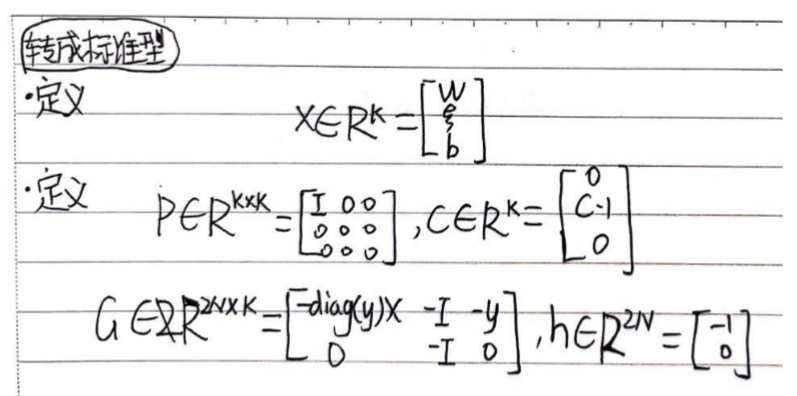 转成标准型
·定义
X∈R^K=[W ξ b]
·定义
P∈R^{K×K}=[I 0 0; 0 0 0; 0 0 0], C∈R^K=[0; C·1; 0]
G∈R^{2N×K}=[-diag(y)X -I -y; 0 -I 0], h∈R^{2N}=[-1; 0]